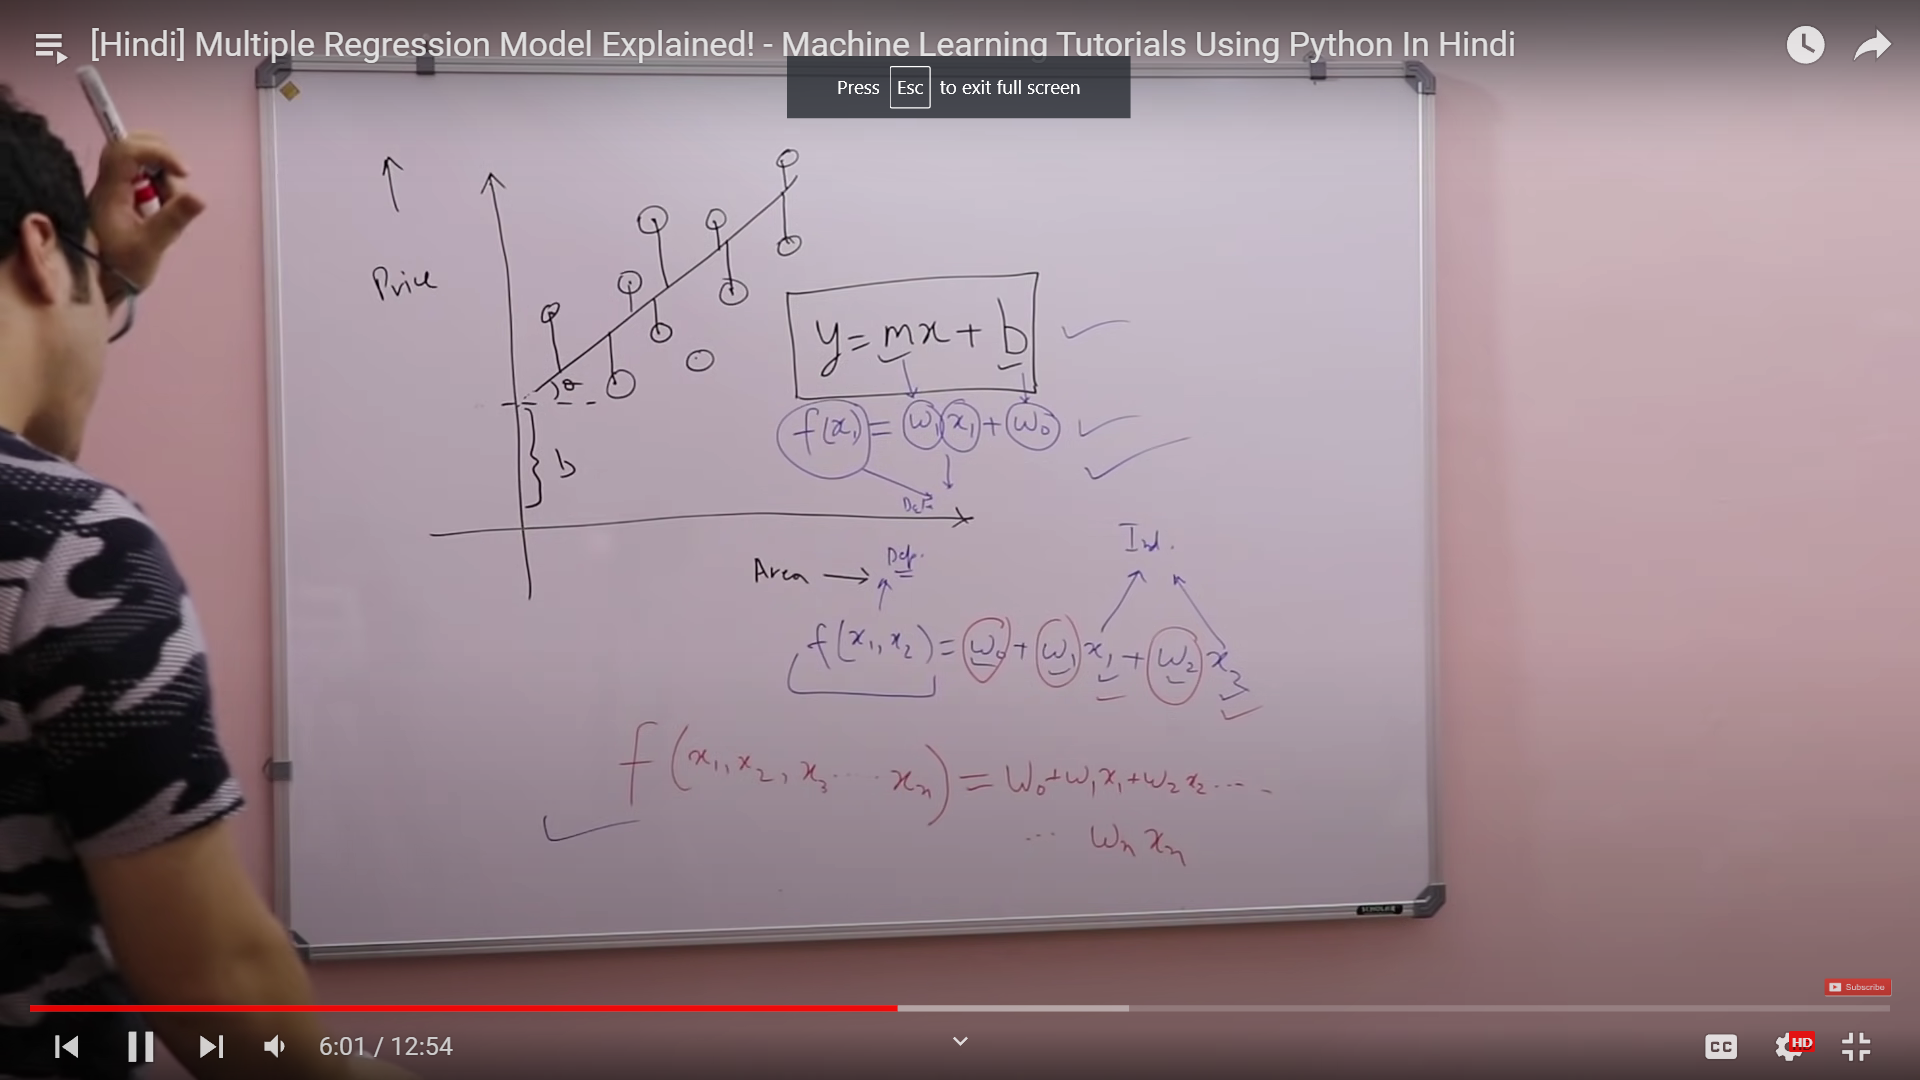 [Hindi] Multiple Regression Model Explained! - Machine Learning Tutorials Using Python In Hindi
Press Esc to exit full screen
Price
y = mx + b
f(x₁) = ω₁x₁ + ω₀
θ
b
Dep.
Ind.
Area →
f(x₁, x₂) = ω₀ + ω₁x₁ + ω₂x₂
f(x₁, x₂, x₃ ..... xₙ) = ω₀ + ω₁x₁ + ω₂x₂ ....
... ωₙxₙ
SCHOLAR
Subscribe
6:01 / 12:54
CC
HD